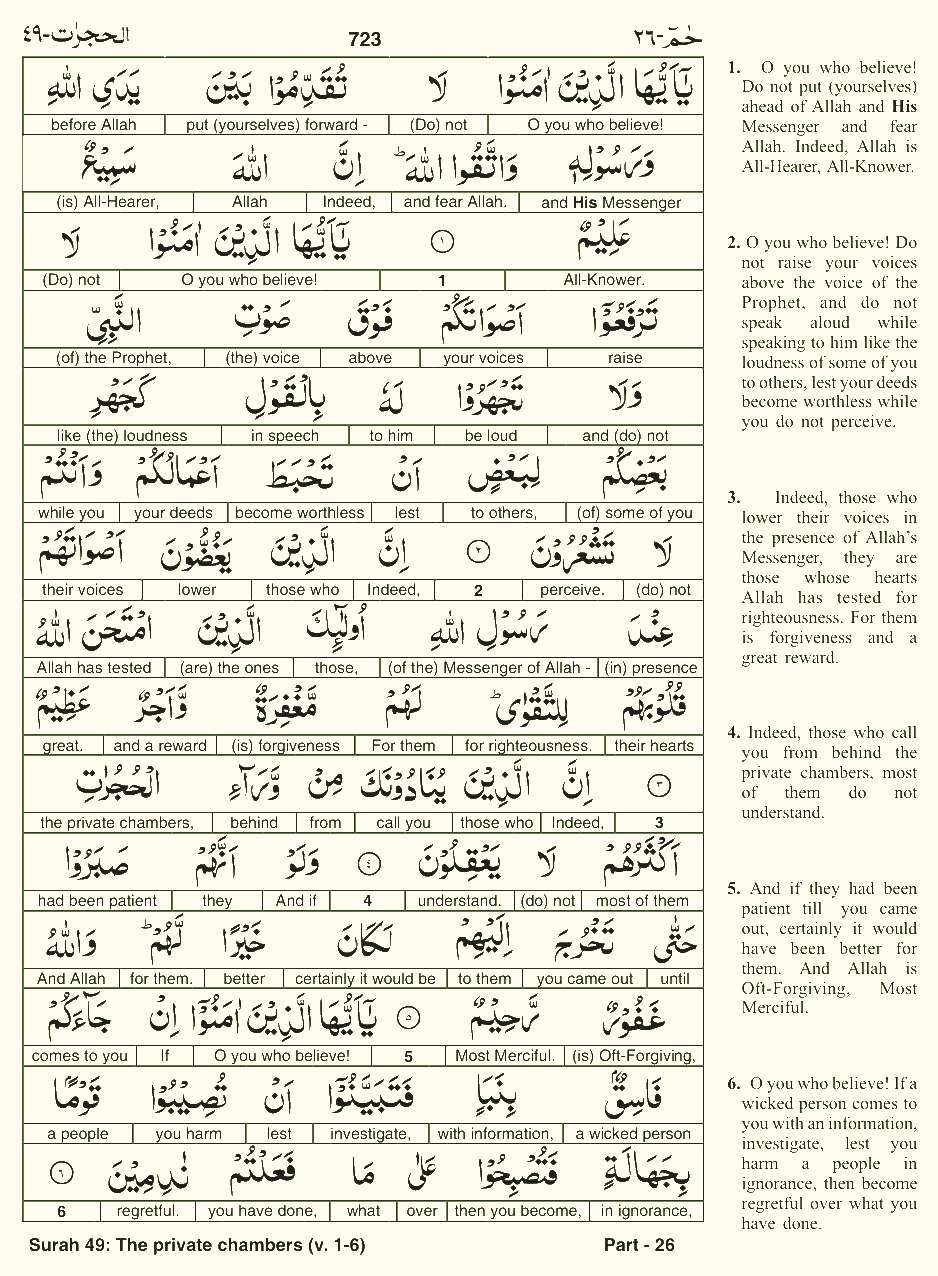 الحجرٰت-٤٩ 723 حٰمٓ-٢٦
يٰۤاَيُّهَا الَّذِيْنَ اٰمَنُوْا لَا تُقَدِّمُوْا بَيْنَ يَدَيِ اللّٰهِ
before Allah put (yourselves) forward - (Do) not O you who believe!
وَرَسُوْلِهٖ وَاتَّقُوا اللّٰهَ ؕ اِنَّ اللّٰهَ سَمِيْعٌ
(is) All-Hearer, Allah Indeed, and fear Allah. and His Messenger
عَلِيْمٌ ۝١ يٰۤاَيُّهَا الَّذِيْنَ اٰمَنُوْا لَا
(Do) not O you who believe! 1 All-Knower.
تَرْفَعُوْۤا اَصْوَاتَكُمْ فَوْقَ صَوْتِ النَّبِيِّ
(of) the Prophet, (the) voice above your voices raise
وَلَا تَجْهَرُوْا لَهٗ بِالْقَوْلِ كَجَهْرِ
like (the) loudness in speech to him be loud and (do) not
بَعْضِكُمْ لِبَعْضٍ اَنْ تَحْبَطَ اَعْمَالُكُمْ وَاَنْتُمْ
while you your deeds become worthless lest to others, (of) some of you
لَا تَشْعُرُوْنَ ۝٢ اِنَّ الَّذِيْنَ يَغُضُّوْنَ اَصْوَاتَهُمْ
their voices lower those who Indeed, 2 perceive. (do) not
عِنْدَ رَسُوْلِ اللّٰهِ اُولٰٓئِكَ الَّذِيْنَ امْتَحَنَ اللّٰهُ
Allah has tested (are) the ones those, (of the) Messenger of Allah - (in) presence
قُلُوْبَهُمْ لِلتَّقْوٰى ؕ لَهُمْ مَّغْفِرَةٌ وَّاَجْرٌ عَظِيْمٌ
great. and a reward (is) forgiveness For them for righteousness. their hearts
۝٣ اِنَّ الَّذِيْنَ يُنَادُوْنَكَ مِنْ وَّرَآءِ الْحُجُرٰتِ
the private chambers, behind from call you those who Indeed, 3
اَكْثَرُهُمْ لَا يَعْقِلُوْنَ ۝٤ وَلَوْ اَنَّهُمْ صَبَرُوْا
had been patient they And if 4 understand. (do) not most of them
حَتّٰى تَخْرُجَ اِلَيْهِمْ لَكَانَ خَيْرًا لَّهُمْ ؕ وَاللّٰهُ
And Allah for them. better certainly it would be to them you came out until
غَفُوْرٌ رَّحِيْمٌ ۝٥ يٰۤاَيُّهَا الَّذِيْنَ اٰمَنُوْۤا اِنْ جَآءَكُمْ
comes to you If O you who believe! 5 Most Merciful. (is) Oft-Forgiving,
فَاسِقٌۢ بِنَبَاٍ فَتَبَيَّنُوْۤا اَنْ تُصِيْبُوْا قَوْمًۢا
a people you harm lest investigate, with information, a wicked person
بِجَهَالَةٍ فَتُصْبِحُوْا عَلٰى مَا فَعَلْتُمْ نٰدِمِيْنَ ۝٦
6 regretful. you have done, what over then you become, in ignorance,
1. O you who believe!
Do not put (yourselves)
ahead of Allah and His
Messenger and fear
Allah. Indeed, Allah is
All-Hearer, All-Knower.
2. O you who believe! Do
not raise your voices
above the voice of the
Prophet, and do not
speak aloud while
speaking to him like the
loudness of some of you
to others, lest your deeds
become worthless while
you do not perceive.
3. Indeed, those who
lower their voices in
the presence of Allah's
Messenger, they are
those whose hearts
Allah has tested for
righteousness. For them
is forgiveness and a
great reward.
4. Indeed, those who call
you from behind the
private chambers, most
of them do not
understand.
5. And if they had been
patient till you came
out, certainly it would
have been better for
them. And Allah is
Oft-Forgiving, Most
Merciful.
6. O you who believe! If a
wicked person comes to
you with an information,
investigate, lest you
harm a people in
ignorance, then become
regretful over what you
have done.
Surah 49: The private chambers (v. 1-6) Part - 26